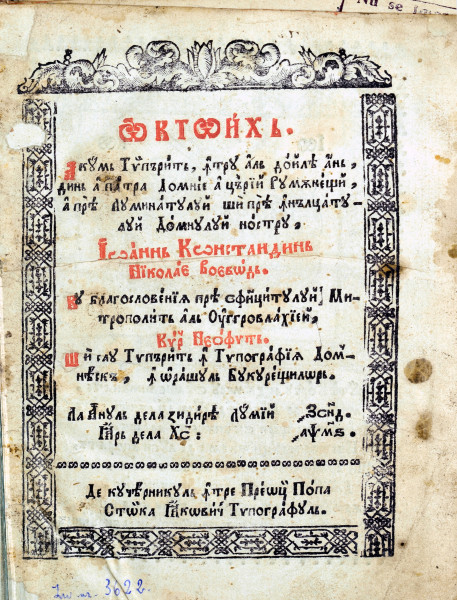 Nu se
Ѻ҆КТѠИ҆ХЪ.
Акꙋмь Тѷпърит, ꙟтрꙋ аль дойлѣ ань,
динь а патра Домнїе а Църїй Рꙋмѫнещй,
а прѣ Лꙋминатꙋлꙋй ши прѣ ꙟнълцатꙋ-
лꙋй Домнꙋлꙋй нострꙋ,
Іѡаннь Кѡнстандинь
Нїколає Воєвѡдь.
Кꙋ благословенїѧ прѣ сфицитꙋлꙋй Ми-
трополить аль Оунгровлахїей,
Кѵр Неѡфѵть.
Шй сау Тѵпърить ꙟ Тѵпографїѧ Дом-
нѣскъ, ꙟ ѡрашꙋль Бꙋкꙋрещилѡрь.
Ла Анꙋль дела зидирѣ лꙋмїй ҂зснд.
Іаръ дела Хс: ҂аѱмѕ.
Де кꙋчѣрникꙋль ꙟтре Преѡцй Попа
Стѡка Іаковичь Тѵпографꙋль.
Inv. nr. 3622.